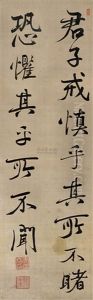 君子戒慎乎其所不睹
恐懼其乎所不聞